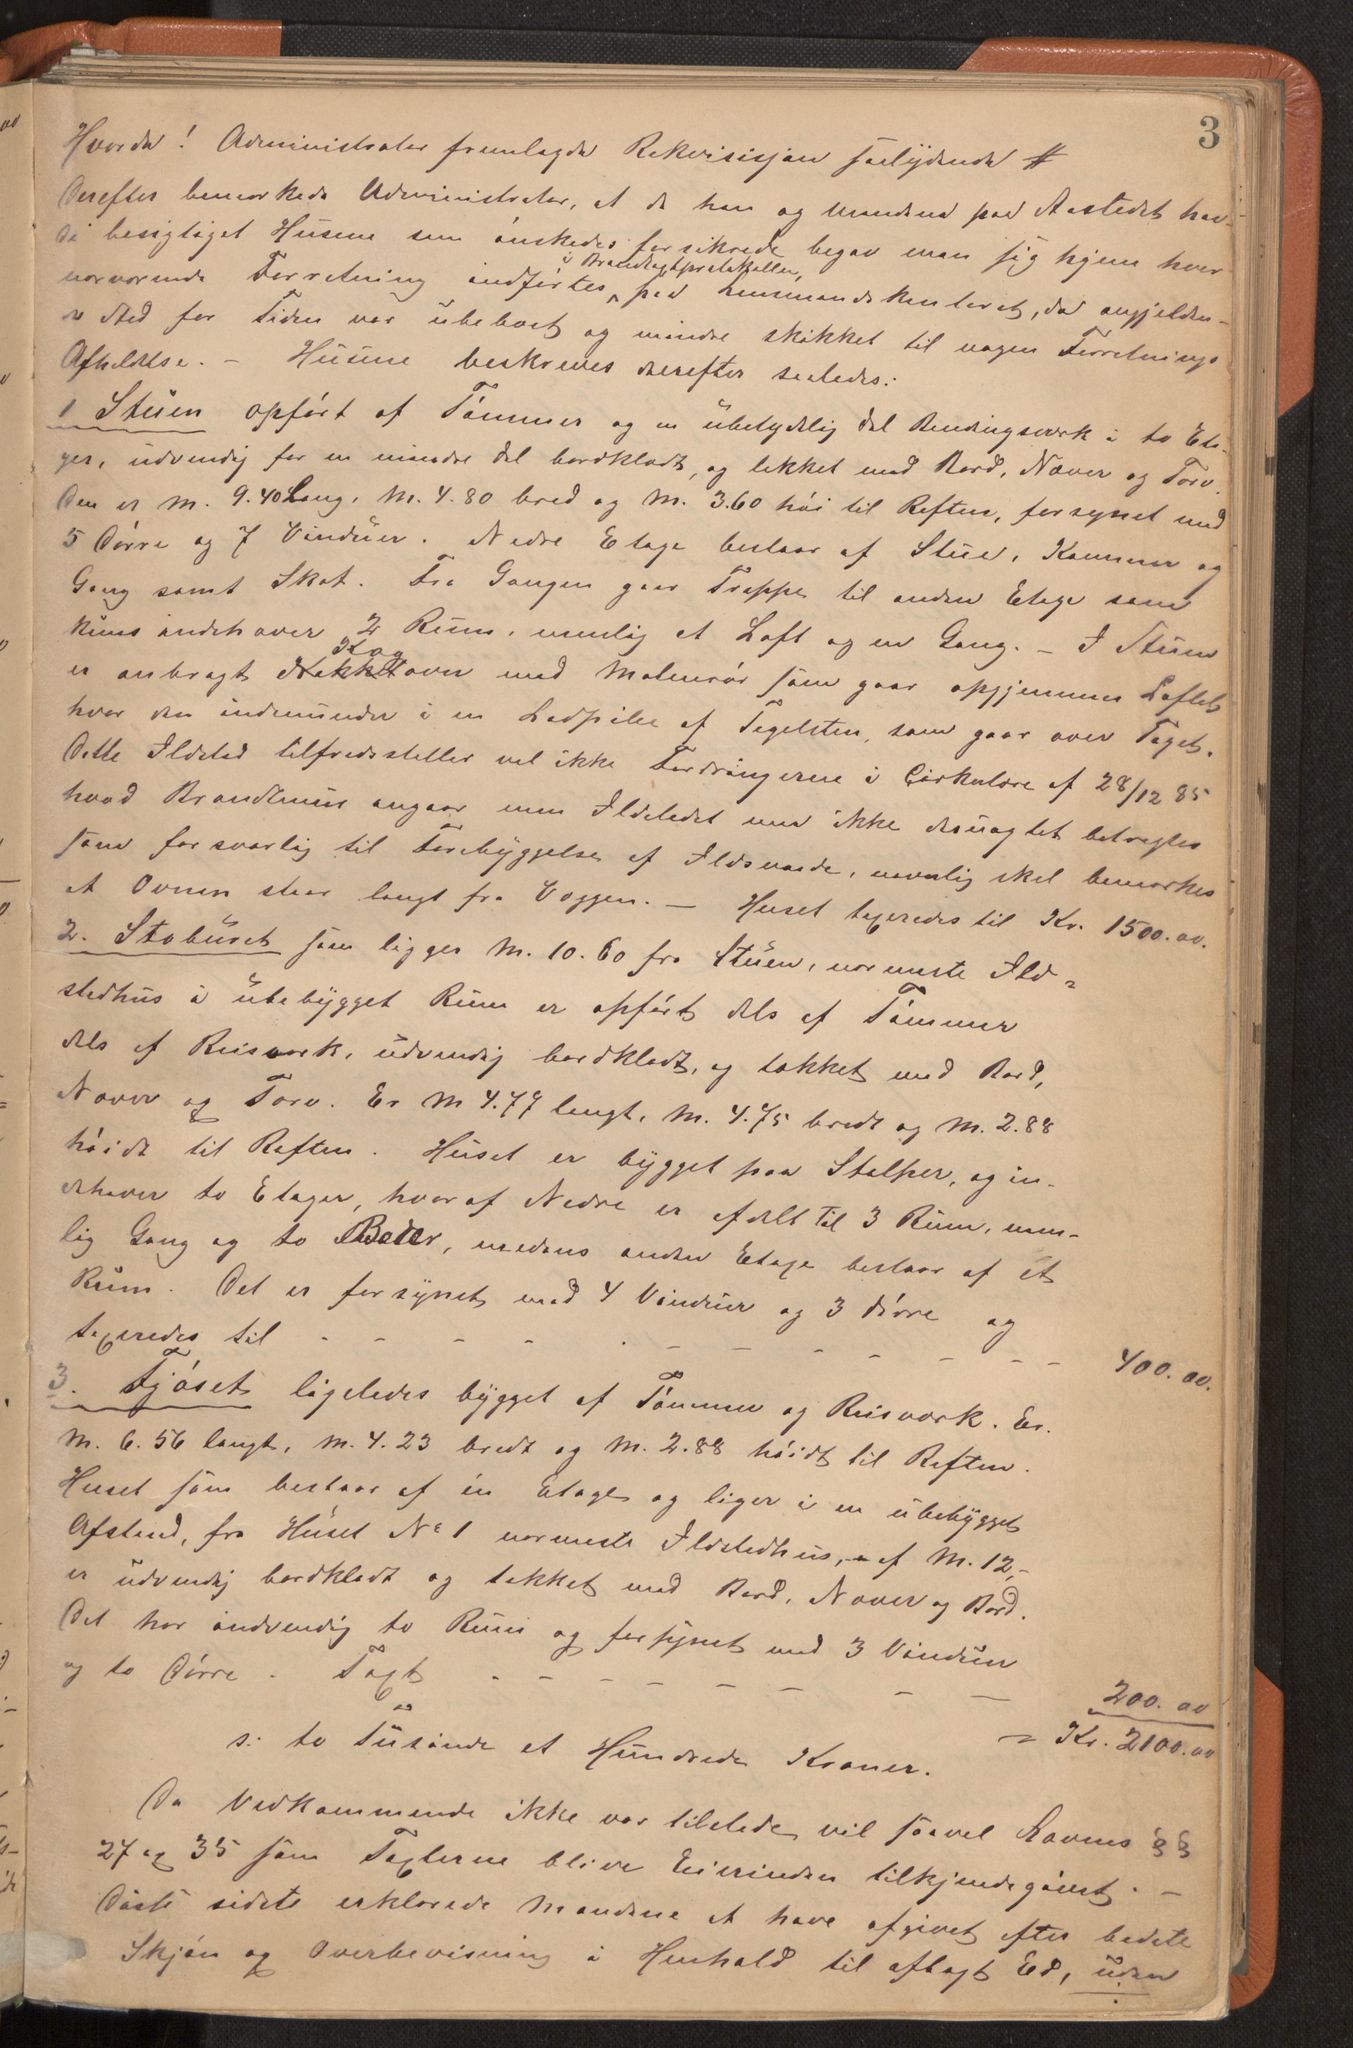 3
Hvorda! Administrator fremlagde Rekvisisjon saalydende #
Derefter bemærkede Administrator, at da han og mændene paa Aastedet hav-
de besigtiget Husene som ønskedes forsikrede begav man sig hjem hvor
nærværende Forretning indførtes i Brandtaxtprotokollen, paa Lensmandskontoret, da angjelden-
de Sted for Tiden var ubeboet og mindre skikket til nogen Forretnings
Afholdelse. – Husene beskreves derefter saaledes:
1 Stuen opført af Tømmer og en ubetydelig Del Bindingsværk i to Eta-
ger, udvendig for en mindre Del bordklædt, og tækket med Bord, Næver og Torv.
Den er M. 9.40 Lang, M. 4.80 bred og M. 3.60 høi til Raften, forsynet med
5 Dørre og 7 Vinduer. Nedre Etage bestaar af Stue, Kammer og
Gang samt Skot. Fra Gangen gaar Trappe til anden Etage som
kuns indehaver 2 Rum, nemlig et Loft og en Gang. – I Stuen
er anbragt Kogovn med Malmrør som gaar opgjennem Loftet
hvor den indmunder i en Ludpibe af Tegelsten, som gaar over Taget.
Dette Ildsted tilfredsstiller vel ikke Fordringerne i Cirkulære af 28/12 85
hvad Brandmur angaar men Ildstedet maa ikke desuagtet betragtes
som forsvarlig til Forebyggelse af Ildsvaade, navnlig skal bemærkes
at Ovnen staar langt fra Væggen. – Huset taxeredes til Kr. 1500.00.
2. Stabuset som ligger M. 10.60 fra Stuen, nærmeste Ild=
stedhus i ubebygget Rum er opført dels af Tømmer
dels af Reisværk, udvendig bordklædt, og tækket med Bord,
Næver og Torv. Er M 4.77 langt, M. 4.75 bredt og M. 2.88
høidt til Raften. Huset er bygget paa Stolper, og in-
dehaver to Etager, hvoraf Nedre er afdelt til 3 Rum, nem-
lig Gang og to Boder, medens anden Etage bestaar af et
Rum. Det er forsynet med 4 Vinduer og 3 dørre og
taxeredes til - - - - - - - - - - - - 400.00.
3. Fjøset ligeledes bygget af Tømmer og Reisværk. Er.
M. 6.56 langt, M. 4.23 bredt og M. 2.88 høidt til Raften.
Huset som bestaar af én Etage og liger i en ubebygget
Afstand, fra Huset No 1 nærmeste Ildstedhus, – af M. 12,-
er udvendig bordklædt og tækket med Bord, Næver og Bord.
Det har indvendig to Rum og forsynet med 3 Vinduer
og to Dørre. Taxt - - - - - - - - - 200.00
s: to Tusinde et Hundrede Kroner. = Kr. 2100.00
Da Vedkommende ikke var tilstede vil saavel Lovens §§
27 og 35 som Taxterne blive Eierinden tilkjendegivet. –
Disse sidste erklærede Mændene at have afgivet efter bedste
Skjøn og Overbevisning i Henhold til aflagt Ed, uden